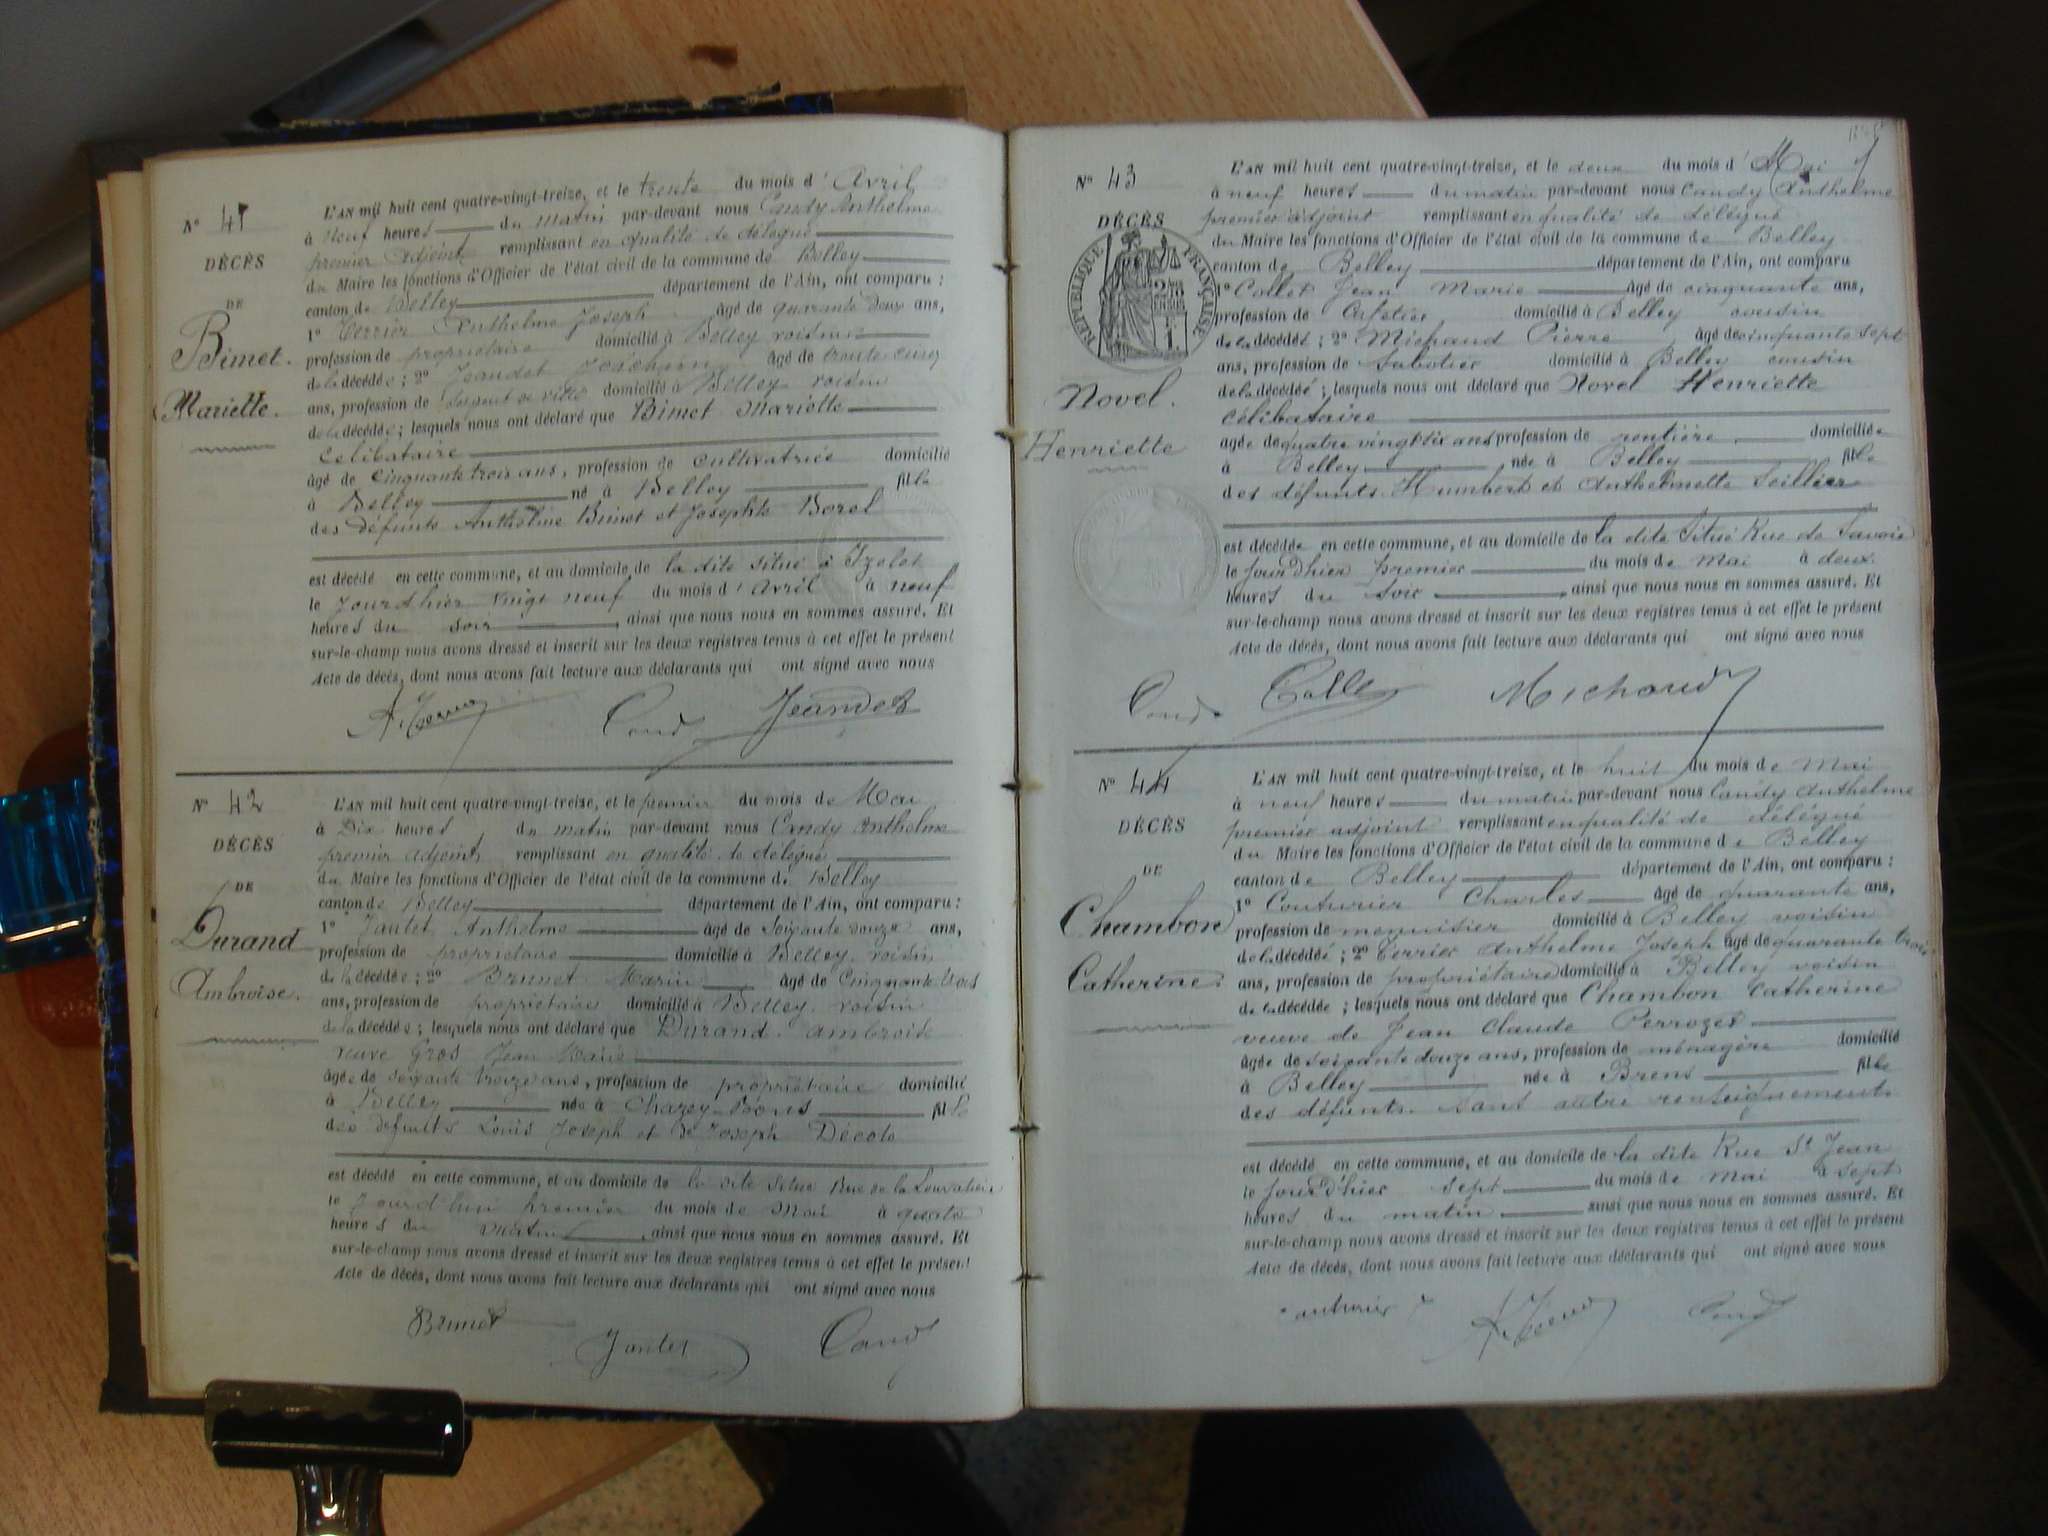 N° 41
DÉCÈS
DE
Bimet
Mariette.
L'AN mil huit cent quatre-vingt-treize, et le trente du mois d'Avril
à neuf heures du matin par-devant nous Candy Anthelme
premier adjoint remplissant en qualité de délégué
du Maire les fonctions d'Officier de l'état civil de la commune de Belley
canton de Belley département de l'Ain, ont comparu :
1° Terrier Anthelme Joseph âgé de quarante deux ans,
profession de propriétaire domicilié à Belley voisin
de la décédée ; 2° Jeandet Joachim âgé de trente cinq
ans, profession de sergent de ville domicilié à Belley voisin
de la décédée ; lesquels nous ont déclaré que Bimet Mariette
célibataire
âgé de cinquante trois ans, profession de cultivatrice domicilié
à Belley né à Belley fille
des défunts Anthelme Bimet et Josephte Borel
est décédé en cette commune, et au domicile de la dite situé à Izelet
le jourd'hier vingt neuf du mois d'Avril à neuf
heures du soir , ainsi que nous nous en sommes assuré. Et
sur-le-champ nous avons dressé et inscrit sur les deux registres tenus à cet effet le présent
Acte de décès, dont nous avons fait lecture aux déclarants qui ont signé avec nous
Jeandet
N° 42
DÉCÈS
DE
Durand
Ambroise.
L'AN mil huit cent quatre-vingt-treize, et le premier du mois de Mai
à Dix heures du matin par-devant nous Candy Anthelme
premier adjoint remplissant en qualité de délégué
du Maire les fonctions d'Officier de l'état civil de la commune de Belley
canton de Belley département de l'Ain, ont comparu :
1° Jantet Anthelme âgé de Soixante douze ans,
profession de propriétaire domicilié à Belley voisin
de la décédée ; 2° Brunet Marin âgé de Cinquante trois
ans, profession de propriétaire domicilié à Belley voisin
de la décédée ; lesquels nous ont déclaré que Durand ambroise
veuve Gros Jean Marie
âgée de soixante treize ans, profession de propriétaire domicilié
à Belley née à Chazey-Bons fille
des défunts Louis Joseph et de Joseph Décote
est décédé en cette commune, et au domicile de la dite situé Rue de la
le jourd'hui premier du mois de Mai à quatre
heures du matin , ainsi que nous nous en sommes assuré. Et
sur-le-champ nous avons dressé et inscrit sur les deux registres tenus à cet effet le présent
Acte de décès, dont nous avons fait lecture aux déclarants qui ont signé avec nous
Brunet Jantet Candy
N° 43
DÉCÈS
RÉPUBLIQUE FRANÇAISE
Novel.
Henriette
L'AN mil huit cent quatre-vingt-treize, et le deux du mois d' Mai
à neuf heures du matin par-devant nous Candy Anthelme
premier adjoint remplissant en qualité de délégué
du Maire les fonctions d'Officier de l'état civil de la commune de Belley
canton de Belley département de l'Ain, ont comparu
1° Collet Jean Marie âgé de cinquante ans,
profession de Cafetier domicilié à Belley cousin
de la décédée ; 2° Michaud Pierre âgé de cinquante sept
ans, profession de Sabotier domicilié à Belley cousin
de la décédée ; lesquels nous ont déclaré que Novel Henriette
célibataire
agée de quatre vingt six ans profession de rentière domiciliée
à Belley née à Belley fille
des défunts Humbert et Anthelmette Seillier
est décédée en cette commune, et au domicile de la dite Situé Rue de Savoie
le jourd'hier premier du mois de Mai à deux
heures du Soir , ainsi que nous nous en sommes assuré. Et
sur-le-champ nous avons dressé et inscrit sur les deux registres tenus à cet effet le présent
Acte de décès, dont nous avons fait lecture aux déclarants qui ont signé avec nous
Candy Collet Michaud
N° 44
DÉCÈS
DE
Chambon
Catherine.
L'AN mil huit cent quatre-vingt-treize, et le huit du mois de Mai
à neuf heures du matin par-devant nous Candy Anthelme
premier adjoint remplissant en qualité de délégué
du Maire les fonctions d'Officier de l'état civil de la commune de Belley
canton de Belley département de l'Ain, ont comparu :
1° Couturier Charles âgé de quarante ans,
profession de menuisier domicilié à Belley voisin
de la décédée ; 2° Terrier Anthelme Joseph âgé de quarante trois
ans, profession de propriétaire domicilié à Belley voisin
de la décédée ; lesquels nous ont déclaré que Chambon Catherine
veuve de Jean Claude Perrozet
âgée de soixante douze ans, profession de ménagère domicilié
à Belley née à Brens fille
des défunts sans autre renseignements
est décédé en cette commune, et au domicile de la dite Rue St Jean
le jourd'hier sept du mois de Mai à sept
heures du matin ainsi que nous nous en sommes assuré. Et
sur-le-champ nous avons dressé et inscrit sur les deux registres tenus à cet effet le présent
Acte de décès, dont nous avons fait lecture aux déclarants qui ont signé avec nous